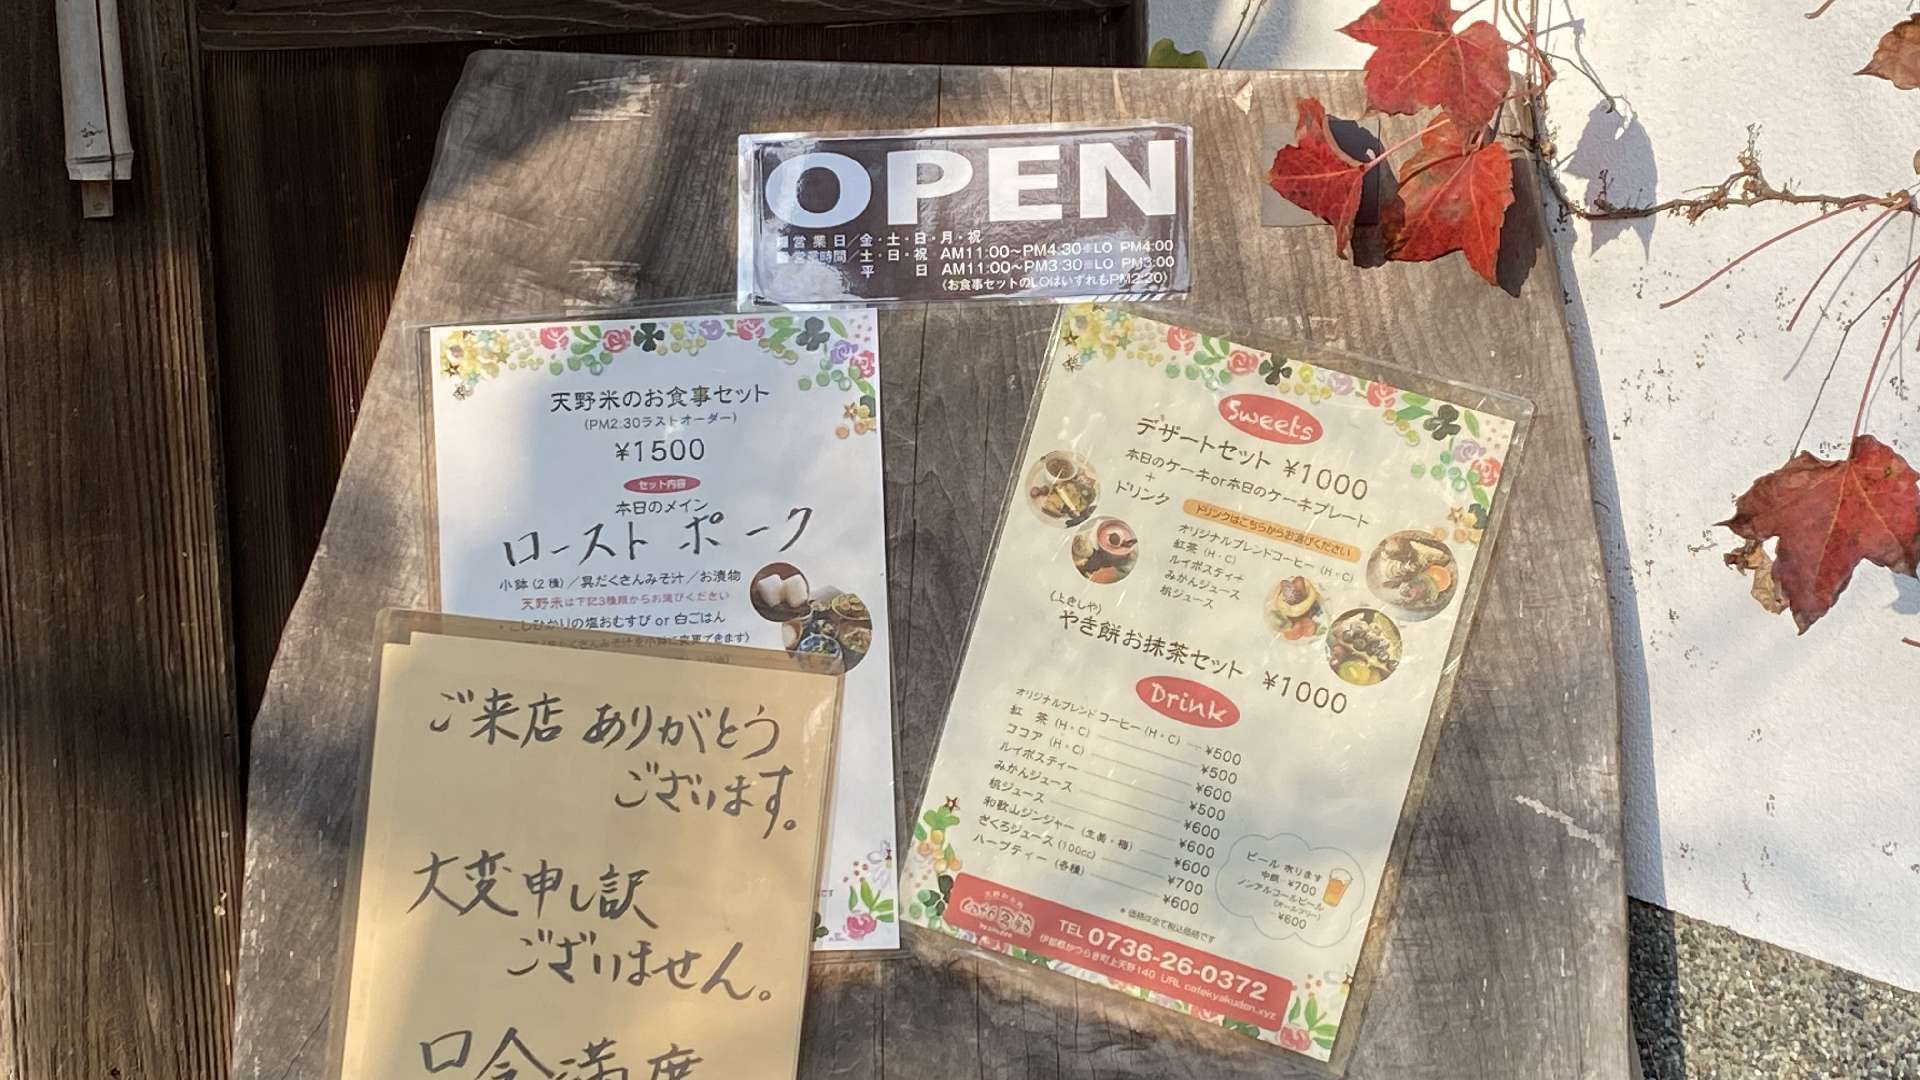 OPEN
営業日/金・土・日・月・祝
営業時間/土・日・祝 AM11:00~PM4:30※LO PM4:00
平 日 AM11:00~PM3:30※LO PM3:00
(お食事セットのLOはいずれもPM2:30)
天野米のお食事セット
(PM2:30ラストオーダー)
¥1500
セット内容
本日のメイン
ローストポーク
小鉢(2種)/具だくさんみそ汁/お漬物
天野米は下記3種類からお選びください
・こしひかりの塩おむすび or 白ごはん
ご来店ありがとう
ございます。
大変申し訳
ございません。
只今満席
Sweets
デザートセット ¥1000
本日のケーキor本日のケーキプレート
+
ドリンク
ドリンクはこちらからお選びください
オリジナルブレンドコーヒー(H・C)
紅茶(H・C)
ルイボスティー
みかんジュース
桃ジュース
(上きしや)
やき餅お抹茶セット ¥1000
Drink
オリジナルブレンドコーヒー(H・C) ¥500
紅 茶(H・C) ¥500
ココア(H・C) ¥600
ルイボスティー ¥500
みかんジュース ¥600
桃ジュース ¥600
和歌山ジンジャー(生姜・梅) ¥600
ざくろジュース(100cc) ¥700
ハーブティー(各種) ¥600
*価格は全て税込価格です
ビール 冰ります
中瓶 ¥700
ノンアルコールビール
(オールフリー)
¥600
TEL 0736-26-0372
伊都郡かつらぎ町上天野140 URL cafekyakuden.xyz